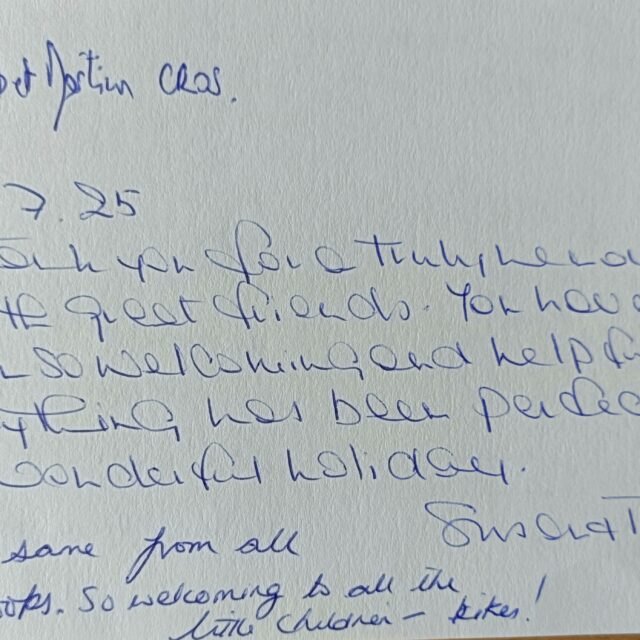 Martin CROS.
7.25
you for a truly
great friends. You have
so welcoming and help
thing has been
wonderful holiday.
Susan
same from all
ooks. So welcoming to all the
little children – bikes!